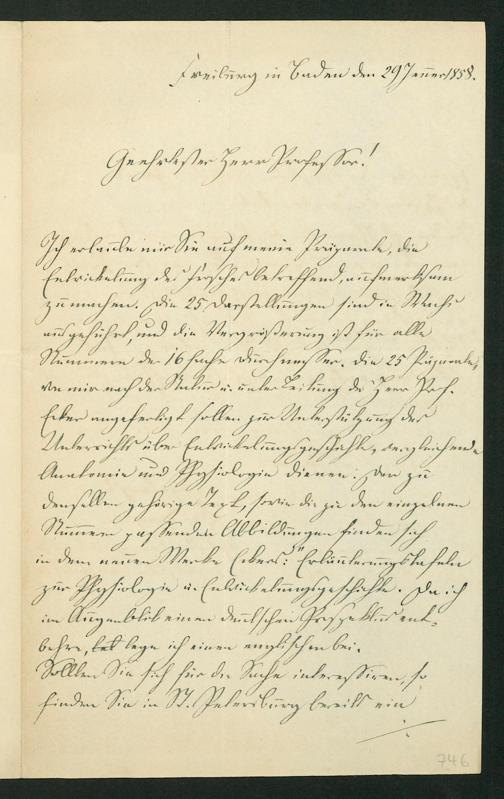 Freiburg in Baden den 29 Jenner 1858.
Geehrtester Herr Professor!
Ich erlaube mir Sie auf meine Präparate, die
Entwickelung des Frosches betreffend, aufmerksam
zu machen. Die 25 Darstellungen sind in Wachs
ausgeführt, und die Vergrößerung ist für alle
Nummern der 16 fache Durchmesser. Die 25 Präparate,
von mir nach der Natur u. unter Leitung des Herr Prof.
Ecker angefertigt sollen zur Unterstützung des
Unterrichts über Entwickelungsgeschichte, vergleichende
Anatomie und Physiologie dienen. Den zu
denselben gehörige Text, sowie die zu den einzelnen
Nummern passenden Abbildungen finden sich
in dem neuen Werke Eckers: "Erläuterungstafeln
zur Physiologie u. Entwickelungsgeschichte. Da ich
im Augenblick einen deutschen Prospektus ent-
behre, lege ich einen englischen bei.
Sollten Sie sich für die Sache interessiren, so
finden Sie in St. Petersburg bereits ein
746